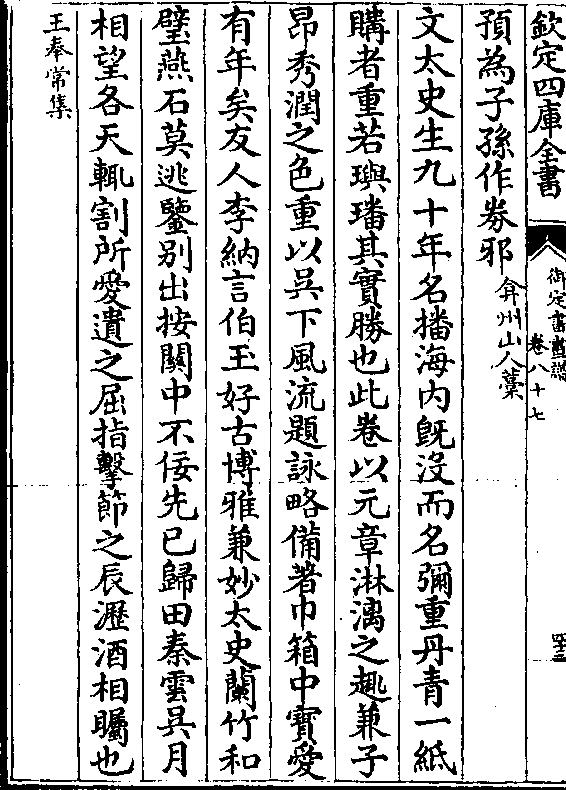 欽定四庫全書
御定書畫譜
卷八十七
四十三
預為子孫作券邪弇州山人藁
文太史生九十年名播海內既沒而名彌重丹青一紙
購者重若璵璠其實勝也此卷以元章淋漓之趣兼子
昂秀潤之色重以吳下風流題詠略備著巾箱中寶愛
有年矣友人李納言伯玉好古博雅兼妙太史蘭竹和
璧燕石莫逃鑒別出按關中不佞先已歸田秦雲吳月
相望各天輒割所愛遺之屈指擊節之辰瀝酒相矚也
王奉常集